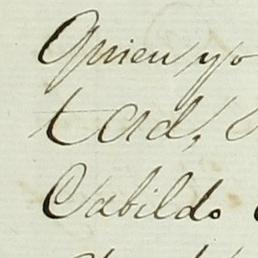 Quien yo
tad,
Cabildo